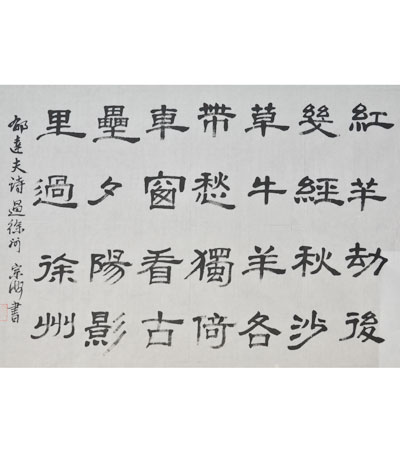 紅羊劫後
幾經秋沙
草牛羊各
帶愁獨倚
車窗看古
壘夕陽影
里過徐州
郁達夫诗過徐州 宗海書